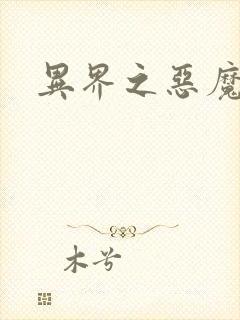 異界之惡魔
木兮